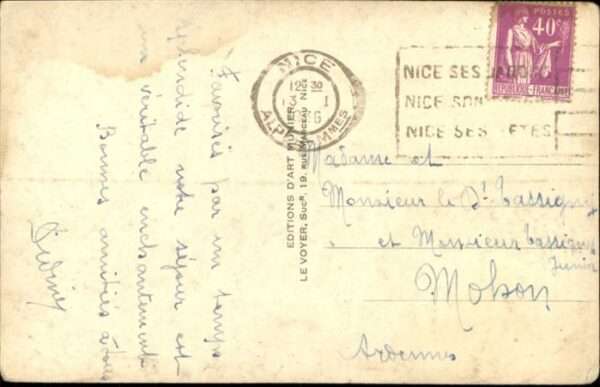 Favorisés par un temps
splendide notre séjour est
un véritable enchantement
Bonnes amitiés à tous
EDITIONS D'ART MUNIER
LE VOYER, SUCR, 19, RUE MARCEAU NICE
NICE
12 30
ALPES MMES
NICE SES JARD
NICE SON
NICE SES FETES
POSTES
40c
REPUBLIQUE FRANÇAISE
Madame et
Monsieur le Dr Tassigny
et Monsieur Tassigny
Junior
Mohon
Ardennes